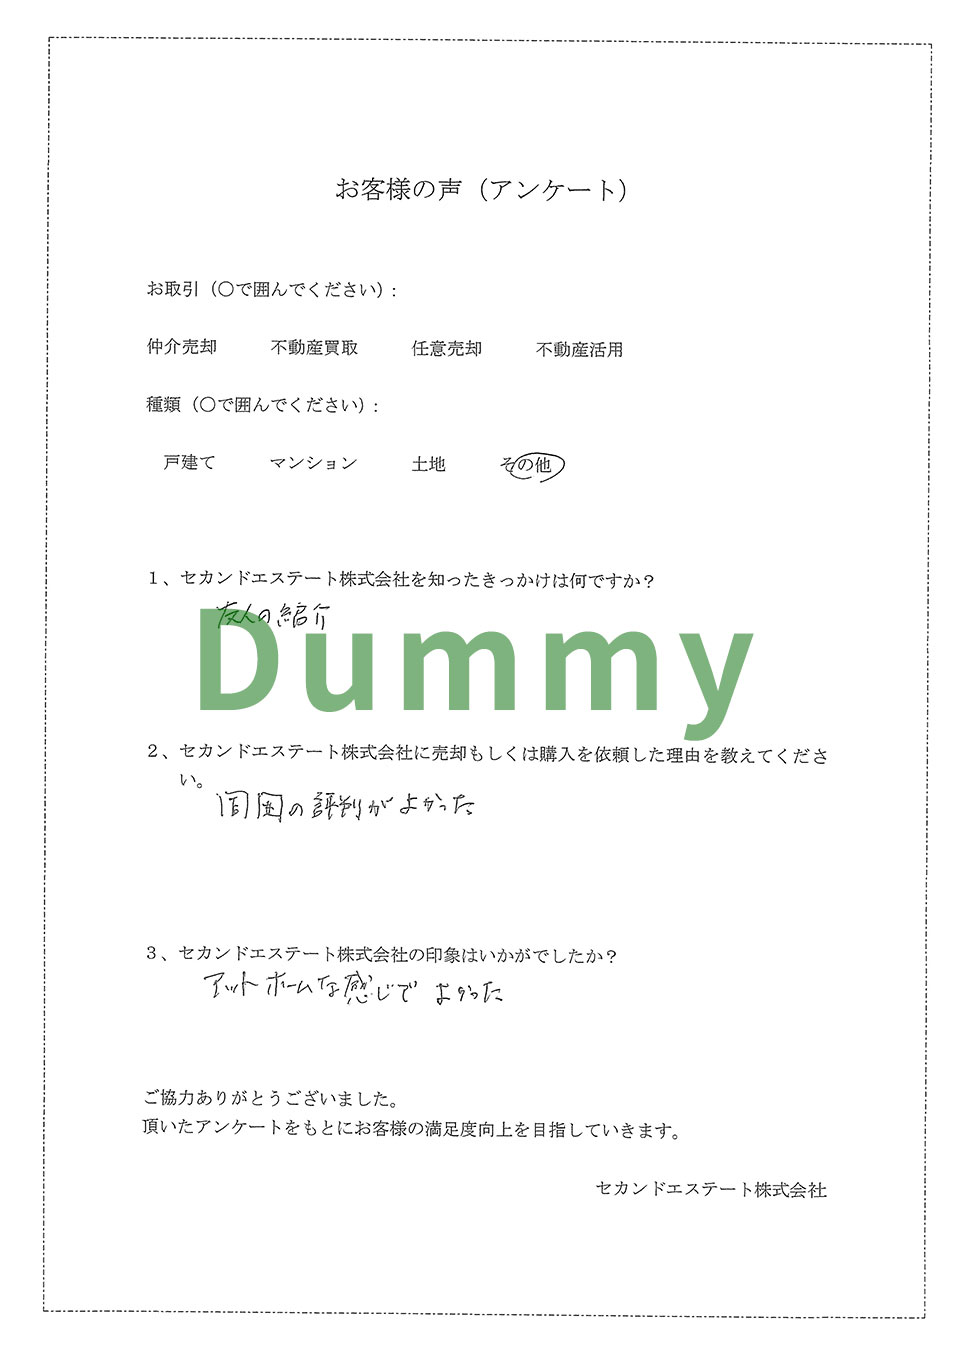 お客様の声（アンケート）
お取引（〇で囲んでください）:
仲介売却　不動産買取　任意売却　不動産活用
種類（〇で囲んでください）:
戸建て　マンション　土地　その他
１、セカンドエステート株式会社を知ったきっかけは何ですか？
友人の紹介
Dummy
２、セカンドエステート株式会社に売却もしくは購入を依頼した理由を教えてくださ
い。
周囲の評判がよかった
３、セカンドエステート株式会社の印象はいかがでしたか？
アットホームな感じでよかった
ご協力ありがとうございました。
頂いたアンケートをもとにお客様の満足度向上を目指していきます。
セカンドエステート株式会社